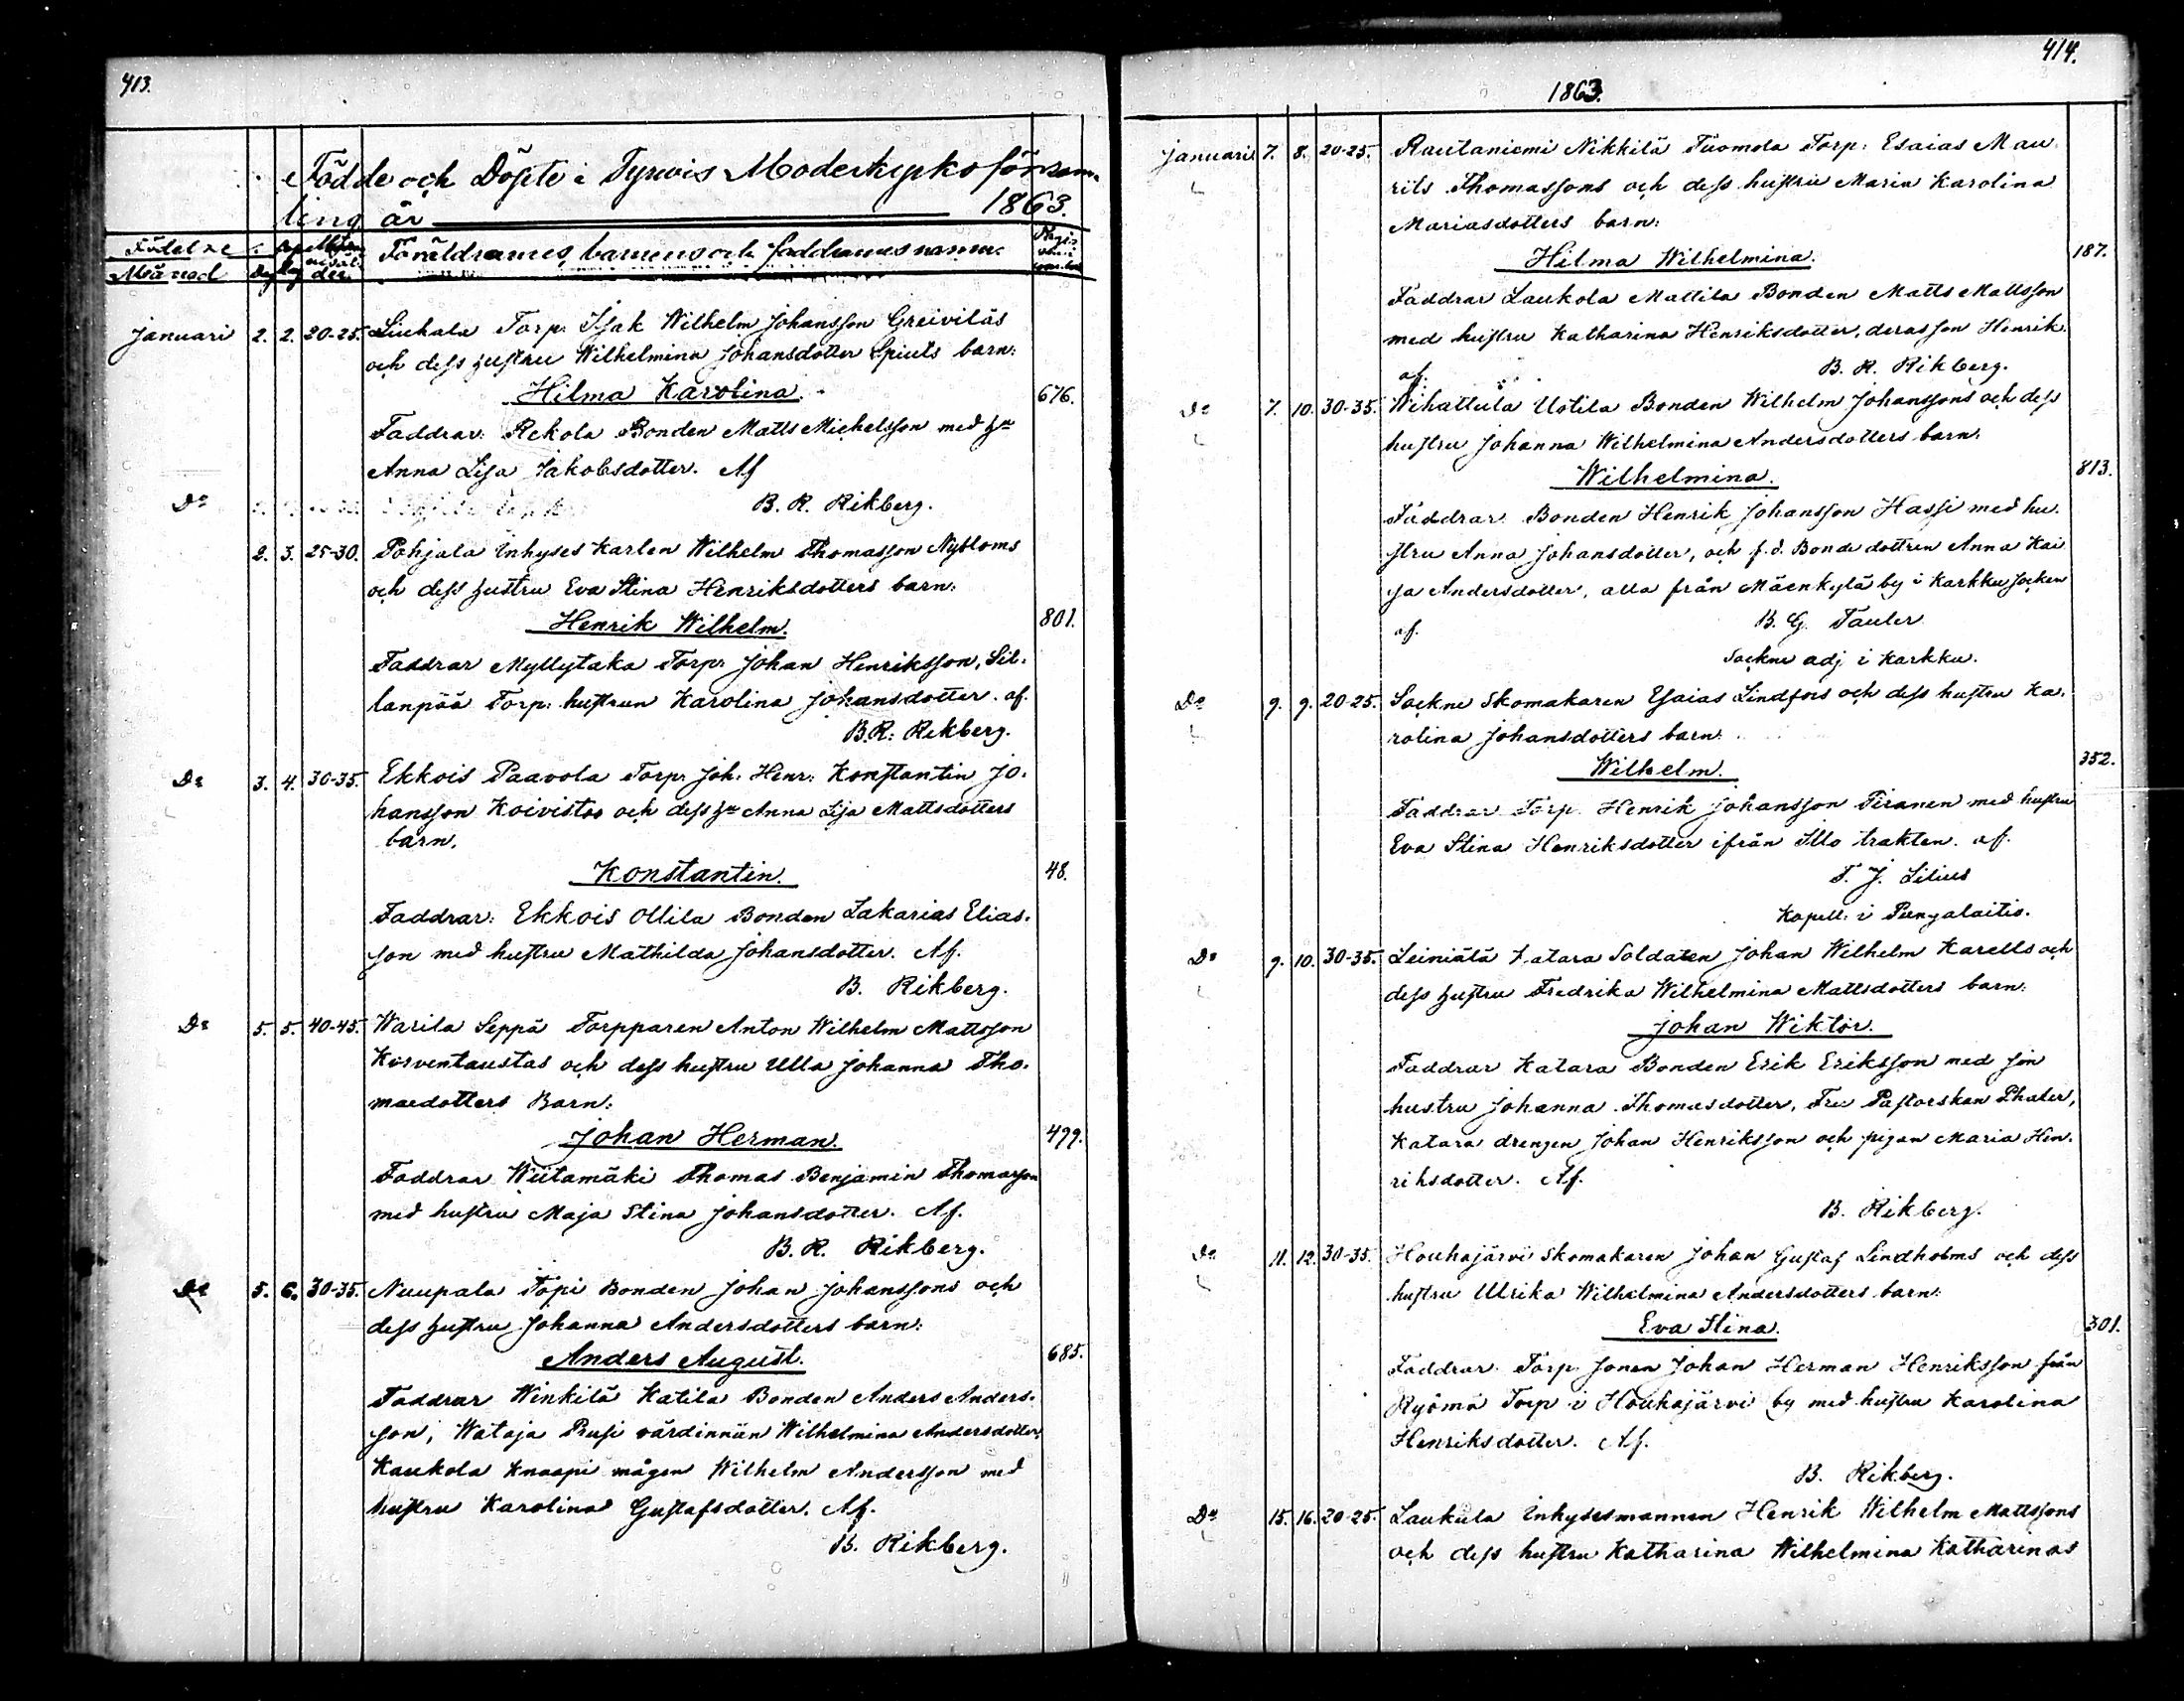 413.
Födde och Döpte i Tyrvis Moderkyrkoförsam-
ling år 1863.
Födelse
Månad Dag Dag
Föräldrarnes, barnens och faddrarnes namn.
Januari 2. 2. 20-25. Liuhala Torp. Isak Wilhelm Johansson Greiviläs
och dess hustru Wilhelmina Johansdotter Spiuts barn:
Hilma Karolina. 676.
Faddrar: Rekola Bonden Matts Michelsson med hu
Anna Lisa Jakobsdotter. Af
Do B. R. Rikberg.
2. 3. 25-30. Pohjala Inhyses Karlen Wilhelm Thomasson Nybloms
och dess hustru Eva Stina Henriksdotters barn:
Henrik Wilhelm. 801.
Faddrar Myllytaka Torp: Johan Henriksson, Sil-
lanpää Torp: hustrun Karolina Johansdotter. af.
B. R. Rikberg.
Do 3. 4. 30-35. Ekkois Paavola Torp: Joh: Henr: Konstantin Jo-
hansson Koivistos och dess hu Anna Lisa Mattsdotters
barn.
Konstantin. 48.
Faddrar: Ekkois Ollila Bonden Zakarias Elias-
son med hustru Mathilda Johansdotter. Af.
B. Rikberg.
Do 5. 5. 40-45. Warila Seppä Torpparen Anton Wilhelm Mattsson
Korventaustas och dess hustru Ulla Johanna Tho-
masdotters Barn:
Johan Herman. 499.
Faddrar Wiitamäki Thomas Benjamin Thomasson
med hustru Maja Stina Johansdotter. Af.
B. R. Rikberg.
Do 5. 6. 30-35. Nuupala Töpi Bonden Johan Johanssons och
dess hustru Johanna Andersdotters barn:
Anders August. 685.
Faddrar Winkilä Katila Bonden Anders Anders-
son, Wataja Prusi värdinnan Wilhelmina Andersdotter,
Kaukola Knaapi mågen Wilhelm Andersson med
hustru Karolina Gustafsdotter. Af.
B. Rikberg.
414.
1863.
Januari 7. 8. 20-25. Rautaniemi Nikkilä Tuomola Torp: Esaias Mau-
rits Thomassons och dess hustru Maria Karolina
Mariasdotters barn:
Hilma Wilhelmina. 187.
Faddrar Laukola Mattila Bonden Matts Mattsson
med hustru Katharina Henriksdotter, deras son Henrik.
af. B. R. Rikberg.
Do 7. 10. 30-35. Wihattula Uotila Bonden Wilhelm Johanssons och dess
hustru Johanna Wilhelmina Andersdotters barn.
Wilhelmina. 813.
Faddrar: Bonden Henrik Johansson Hassi med hu-
stru Anna Johansdotter, och f. d. Bonde dottren Anna Kai-
sa Andersdotter, alla från Mäenkylä by i Karkku socken
af. B. G. Tauler
Sockne adj i Karkku.
Do 9. 9. 20-25. Sockne Skomakaren Esaias Lindfors och dess hustru Ka-
rolina Johansdotters barn:
Wilhelm. 352.
Faddrar Torp. Henrik Johansson Piranen med hustru
Eva Stina Henriksdotter ifrån Illo trakten. af.
F. J. Lilius
Kapell: i Pungalaitio.
Do 9. 10. 30-35. Leiniälä Katara Soldaten Johan Wilhelm Karells och
dess hustru Fredrika Wilhelmina Mattsdotters barn:
Johan Wiktor.
Faddrar Katara Bonden Erik Eriksson med sin
hustru Johanna Thomasdotter, Fru Pastorskan Thaler,
Katara drengen Johan Henriksson och pigan Maria Hen-
riksdotter. Af.
B. Rikberg.
Do 11. 12. 30-35. Houhajärvi Skomakaren Johan Gustaf Lindholms och dess
hustru Ulrika Wilhelmina Andersdotters barn:
Eva Stina. 301.
Faddrar: Torp. sonen Johan Herman Henriksson från
Ryömä Torp i Houhajärvi by med hustru Karolina
Henriksdotter. Af.
B. Rikberg.
Do 15. 16. 20-25. Laukula Inhysesmannen Henrik Wilhelm Mattssons
och dess hustru Katharina Wilhelmina Katharinas